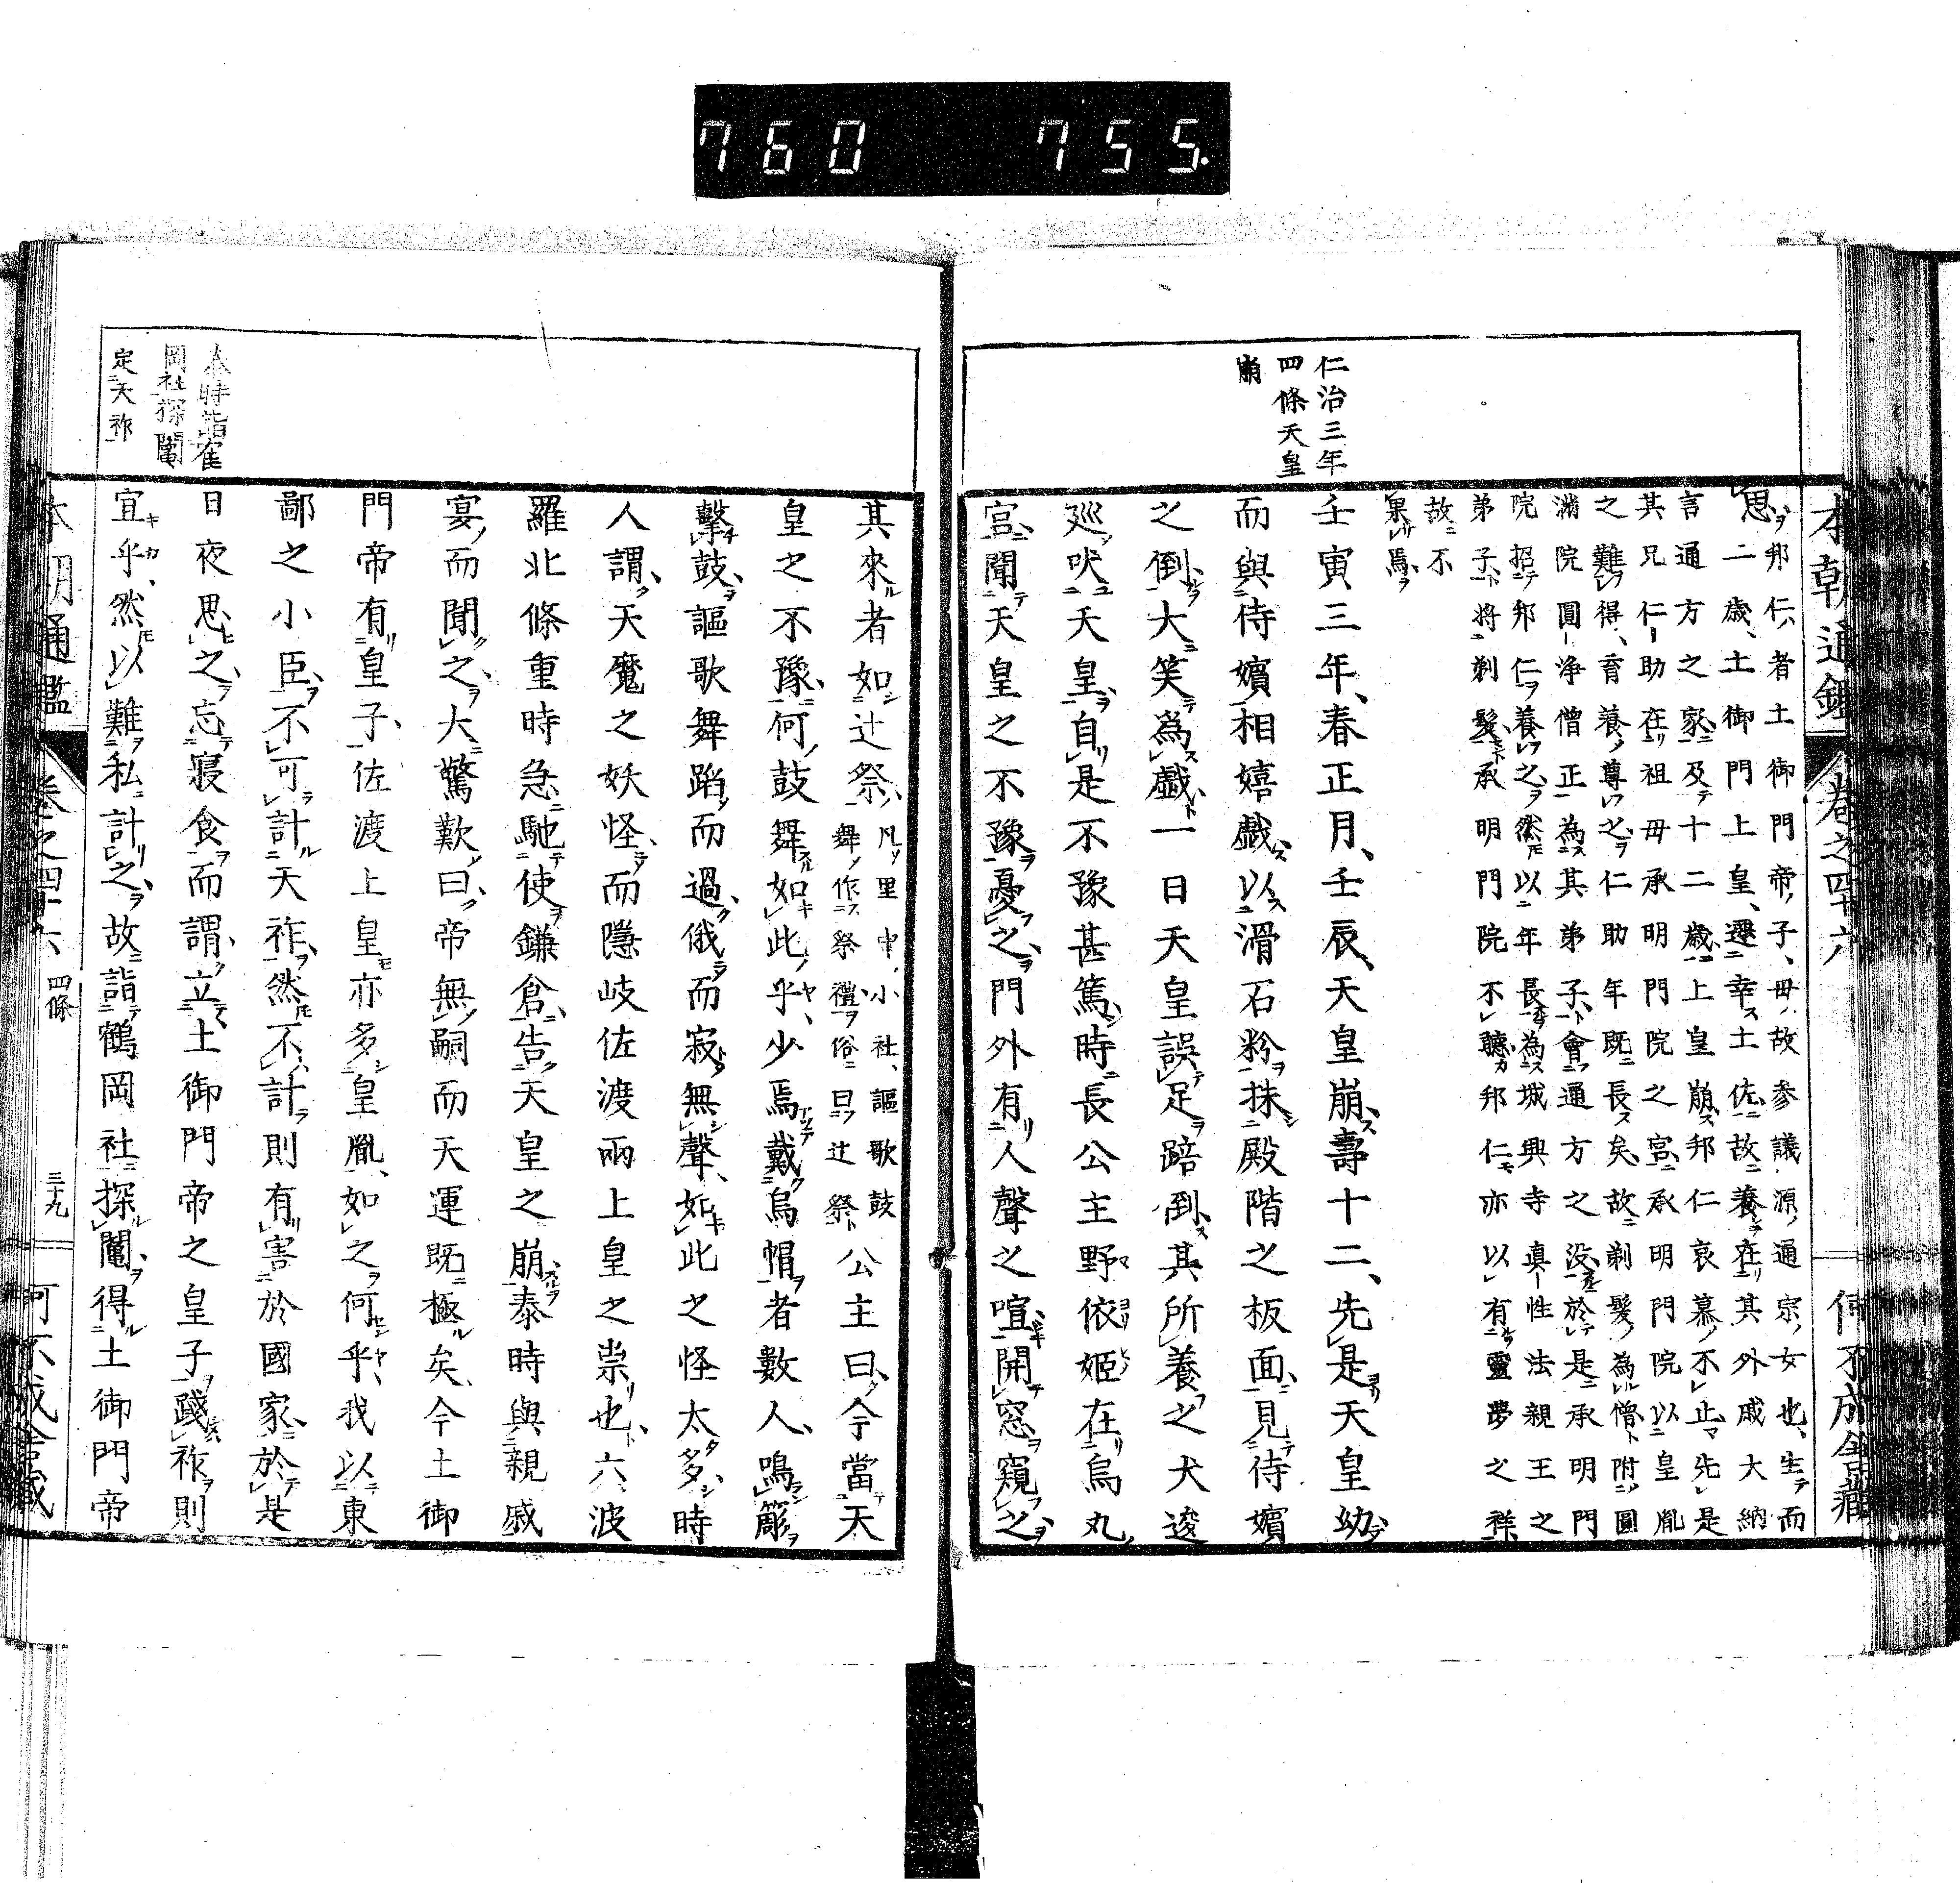 760 755.
本朝通鑑 卷之四十六 何不成舍藏
仁治三年
四條天皇
崩
思
邦仁者土御門帝子母故参議源通宗女也生而
二歲土御門上皇遷幸土佐故養在其外戚大納
言通方之家及十二歲上皇崩邦仁哀慕不止先是
其兄仁助在祖毋承明門院之宮承明門院以皇胤
之難得育養尊之仁助年既長矣故剃髮為僧附圓
滿院圓淨僧正為其弟子會通方之没於是承明門
院招邦仁養之然以年長為城興寺真性法親王之
弟子將剃髮承明門院不聽邦仁亦以有靈夢之祥
故不
果焉
壬寅三年春正月壬辰天皇崩壽十二先是天皇幼
而與侍嬪相嬉戲以滑石粉抹殿階之板面見侍嬪
之倒大笑為戲一日天皇誤足踣倒其所養之犬逡
巡吠天皇自是不豫甚篤時長公主野依姬在烏丸
宮聞天皇之不豫憂之門外有人聲之喧開窓窺之
其來者如辻祭
凡里中小社謳歌鼓
舞作祭禮俗曰辻祭
公主曰今當天
皇之不豫何鼓舞如此乎少焉戴烏帽者數人鳴
擊鼓謳歌舞蹈而過俄而寂無聲如此之怪太多時
人謂天魔之妖怪而隱岐佐渡兩上皇之祟也六波
羅北條重時急馳使鎌倉告天皇之崩泰時與親戚
宴而聞之大驚歎曰帝無嗣而天運既極矣今土御
門帝有皇子佐渡上皇亦多皇胤如之何乎我以東
鄙之小臣不可計天祚然不計則有害於國家於是
日夜思之忘寢食而謂立土御門帝之皇子踐祚則
宜乎然以難私計之故詣鶴岡社探鬮得土御門帝
泰時詣雀
岡社探鬮
定天祚
本朝通鑑 卷之四十六 四條 三十九 何不成舍藏